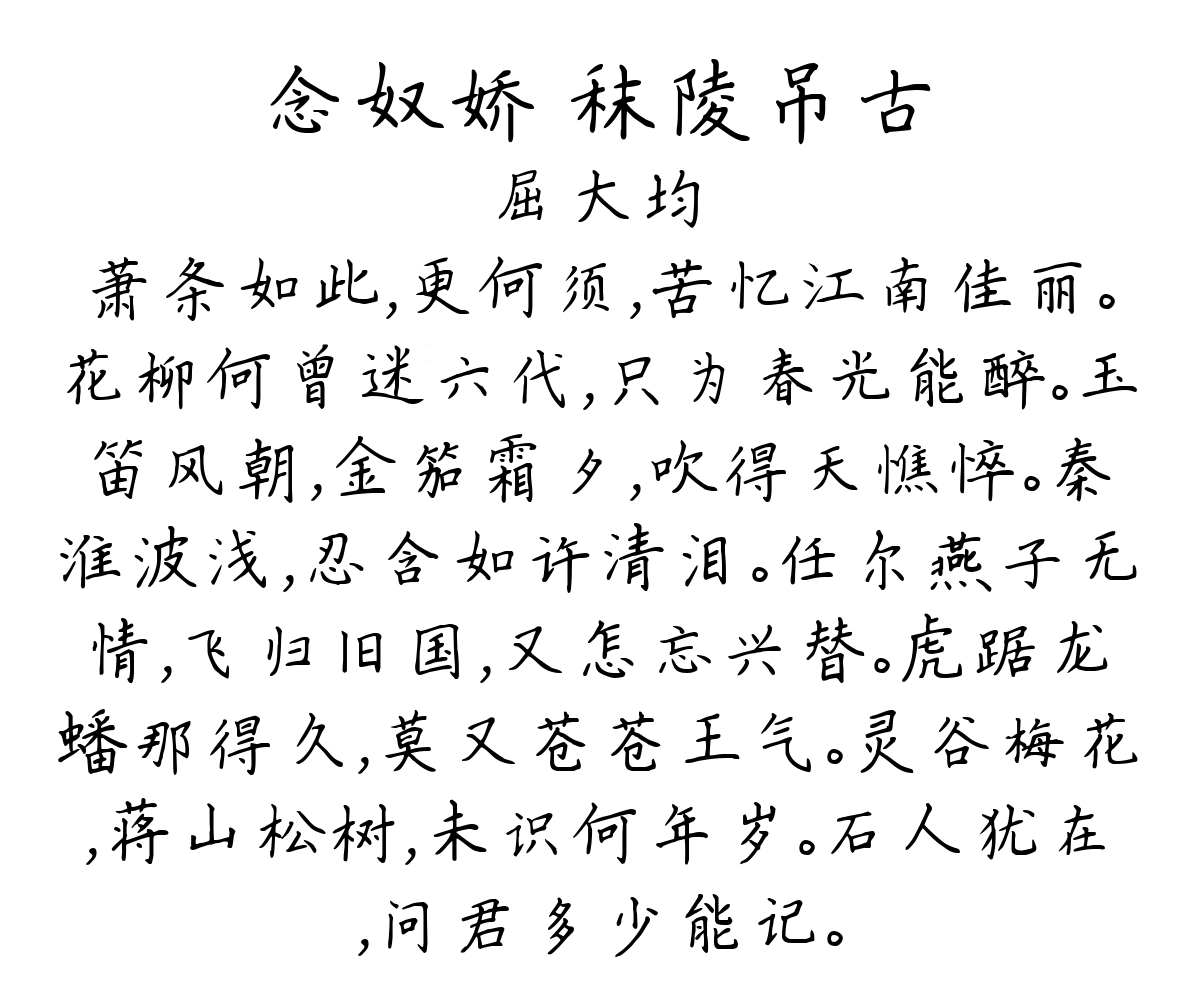 念奴娇 秣陵吊古
屈大均
萧条如此,更何须,苦忆江南佳丽。
花柳何曾迷六代,只为春光能醉。玉
笛风朝,金笳霜夕,吹得天憔悴。秦
淮波浅,忍含如许清泪。任尔燕子无
情,飞归旧国,又怎忘兴替。虎踞龙
蟠那得久,莫又苍苍王气。灵谷梅花
,蒋山松树,未识何年岁。石人犹在
,问君多少能记。